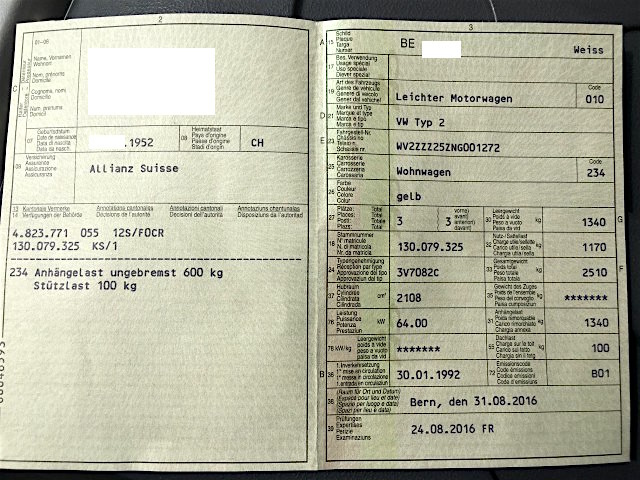 2
01-06
Name, Vornamen
Wohnort
Nom, prénoms
Domicile
Cognome, nomi
Domicilio
Num, prenums
Domicil
C
07 Geburtsdatum
Date de naissance
Data di nascita
Data da nasch.
.1952
08 Heimatstaat
Pays d'origine
Paese d'origine
Stadi d'origin
CH
09 Versicherung
Assurance
Assicurazione
Assicuranza
Allianz Suisse
13 Kantonale Vermerke Annotations cantonales Annotazioni cantonali Annotaziuns chantunalas
14 Verfügungen der Behörde Décisions de l'autorité Decisioni dell'autorità Disposiziuns da l'autoritad
4.823.771 055 12S/FOCR
130.079.325 KS/1
234 Anhängelast ungebremst 600 kg
Stützlast 100 kg
3
A 15 Schild
Plaque
Targa
Numer
BE
Weiss
17 Bes. Verwendung
Usage spécial
Uso speciale
Diever spezial
19 Art des Fahrzeugs
Genre de véhicule
Genere di veicolo
Gener dal vehichel
Leichter Motorwagen
Code
010
D 21 Marke und Typ
Marque et type
Marca e tipo
Marca e tip
VW Typ 2
E 23 Fahrgestell-Nr.
Châssis no
Telaio n.
Schassis nr.
WV2ZZZ25ZNG001272
25 Karosserie
Carrosserie
Carrozzeria
Carossaria
Wohnwagen
Code
234
26 Farbe
Couleur
Colore
Colur
gelb
27 Plätze: Total
Places: Total
Posti: Totale
Plazs: Total
3
vorne)
avant)
davanti)
davant)
3
30 Leergewicht
Poids à vide
Peso a vuoto
Paisa da vid
kg
1340
G
18 Stammnummer
N° matricule
N. di matricola
Nr. da matricla
130.079.325
32 Nutz-/Sattellast
Charge utile/sellette
Carico utile/sella
Chargia utila/sella
kg
1170
24 Typengenehmigung
Réception par type
Approvazione del tipo
Approvaziun dal tip
3V7082C
33 Gesamtgewicht
Poids total
Peso totale
Paisa totala
kg
2510
F
37 Hubraum
Cylindrée
Cilindrata
Cilindrada
cm³
2108
35 Gewicht des Zuges
Poids de l'ensemble
Peso del convoglio
Paisa cumposiziun
kg
*******
76 Leistung
Puissance
Potenza
Prestaziun
kW
64.00
31 Anhängelast
Poids remorquable
Carico rimorchiato
Chargia annexa
kg
1340
78 kW/kg Leergewicht
poids à vide
peso a vuoto
paisa da vid
*******
55 Dachlast
Charge sur le toit
Carico sul tetto
Chargia sin il tetg
kg
100
B 36 1. Inverkehrsetzung
1re mise en circulation
1a messa in circolazione
1. entrada en circulaziun
30.01.1992
72 Emissionscode
Code émissions
Codice emissioni
Code d'emissiuns
B01
38 (Raum für Ort und Datum)
(Espace pour lieu et date)
(Spazio per luogo e data)
(Spazi per lieu e data)
Bern, den 31.08.2016
39 Prüfungen
Expertises
Perizie
Examinaziuns
24.08.2016 FR